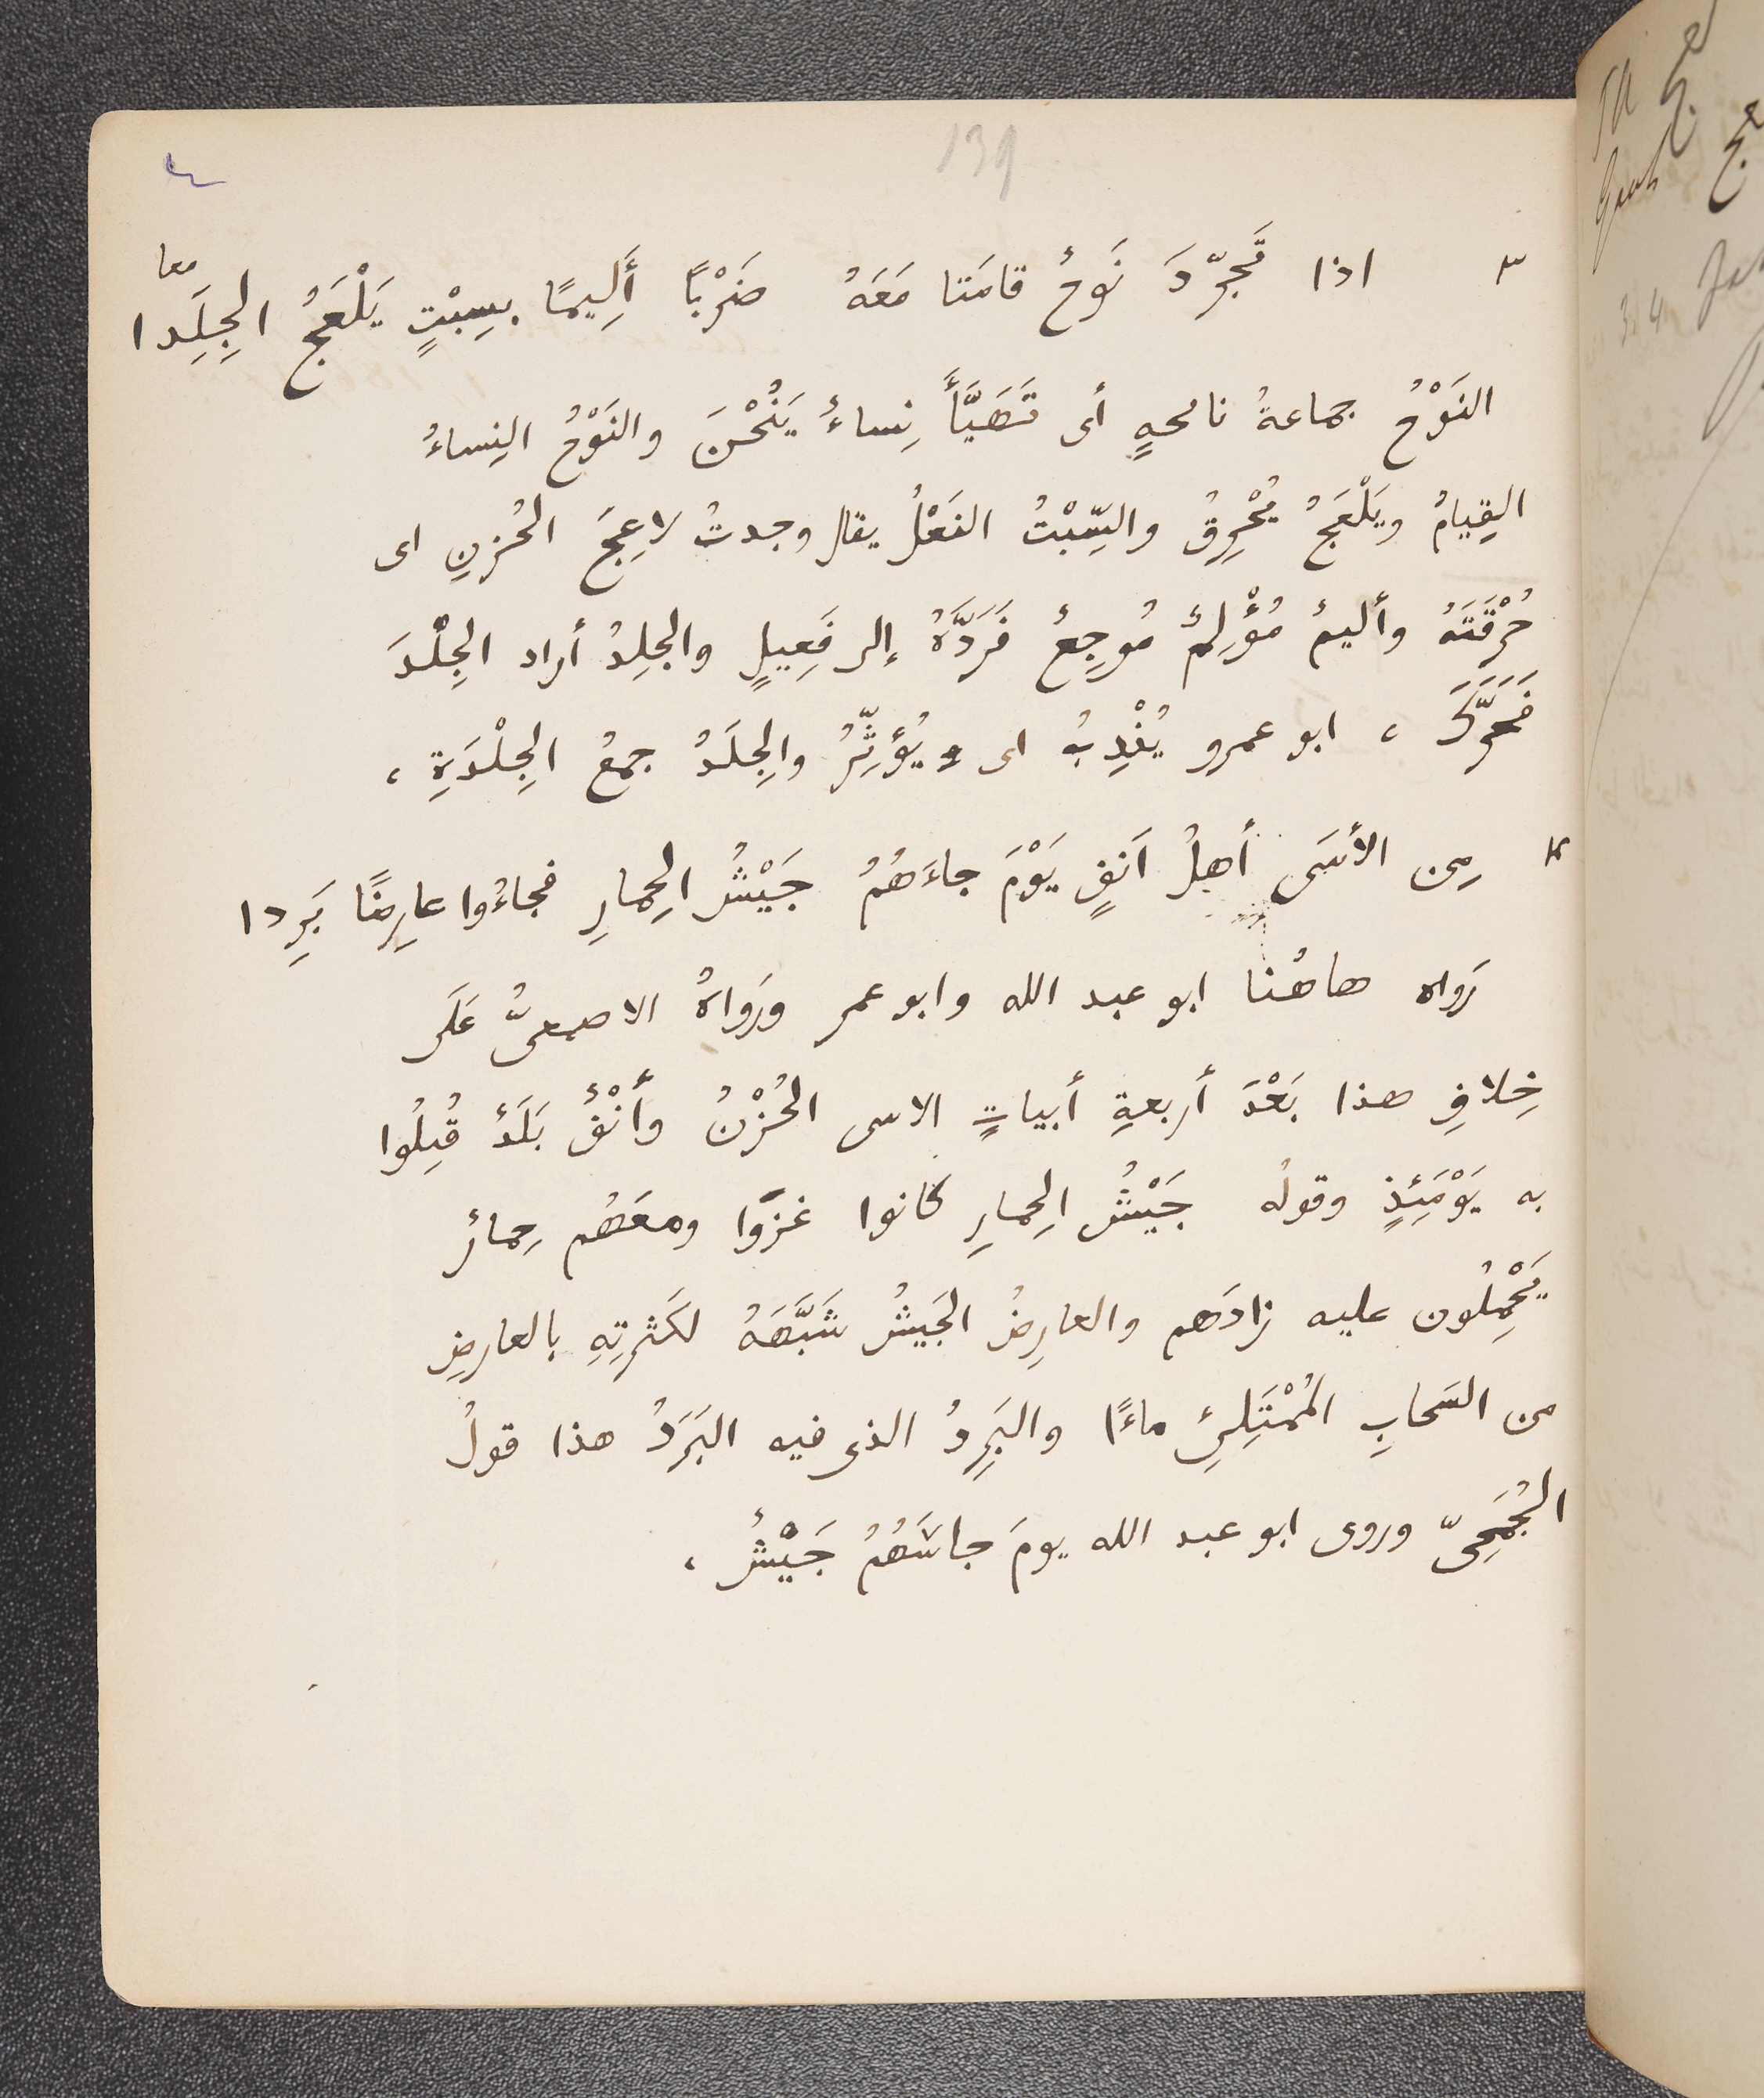 139
٤
٣ اذا تَجَرّدَ نَوحٌ قامَتا مَعَهُ ضَرْبًا أَلِيمًا بسِبْتٍ يَلْعَجُ الجِلَِدا معا
النَوْحُ جماعةُ نائحهٍ أى تَهَيَّأَ نِساءٌ يَنُحْنَ والنَوْحُ النِساءُ
القِيامُ ويَلْعَجُ يُحْرِقُ والسِّبْتُ النَعْلُ يقال وجدتُ لاعِجَ الحُزنِ اى
حُرْقَتَهُ وأليمٌ مُؤْلِمٌ مُوجِعٌ فَرَدَّهُ إلى فَعِيلٍ والجلِدُ أراد الجِلْدَ
فَحَرَّكَ ، ابو عمرو يُنْدِبُ اى يُؤثِّرُ والِجلَدُ جمعُ الجِلْدَةِ ،
٤ مِن الأسَى أهلُ اَنفٍ يَوْمَ جاءَهُمُ جَيْشُ الحِمارِ فجاءُوا عارِضًا بَرِدا
رَواه هاهُنا ابو عبد الله وابو عمر ورَواهُ الاصمعىُّ عَلَى
خِلافِ هذا بَعْدَ أربعةِ أبياتٍ الاسى الحُزْنُ وأنْفٌ بَلَدٌ قُتِلُوا
به يَوْمَئِذٍ وقولُه جَيْشُ الِحمارِ كانوا غزَوا ومعَهُم حِمارٌ
يَحْمِلُون عليه زادَهم والعارِضُ الجَيشُ شَبَّهَهُ لكَثرتِهِ بالعارضِ
من السَحابِ المُمْتَلِئِ ماءًا والبَرِدُ الذى فيه البَرَدُ هذا قولُ
الجُمَحِىّ وروى ابو عبد الله يومَ جاشَهُمُ جَيْشُ ،